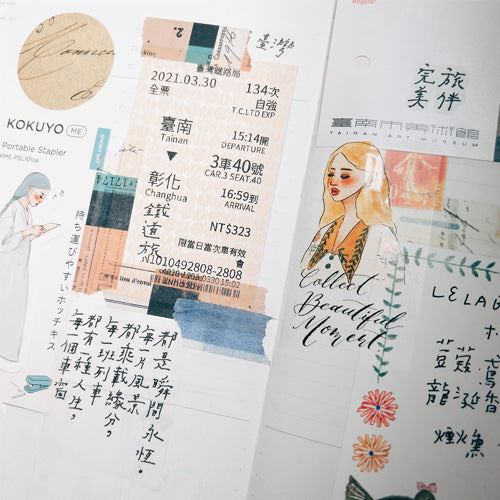 KOKUYO ME
Portable Stapler
持ち運びやすいホッチキス
2.
1976
臺灣
臺灣鐵路局
2021.03.30
134次
全票
自強
T.C.LTD EXP
臺南
Tainan
15:14開
DEPARTURE
▼
3車40號
CAR.3 SEAT.40
彰化
Changhua
16:59到
ARRIVAL
NT$323
鐵道旅
限當日當次車有效
N1010492808-2808
都是瞬間永恆。
每一片風景
都乘載緣分，
每一班列車
都有一種人生，
每一個車窗
Regular
完美
旅伴
臺南市美術館
TAINAN ART MUSEUM
Collect
Beautiful
Moment
LELAB
荳蔻
龍涎香
煙燻